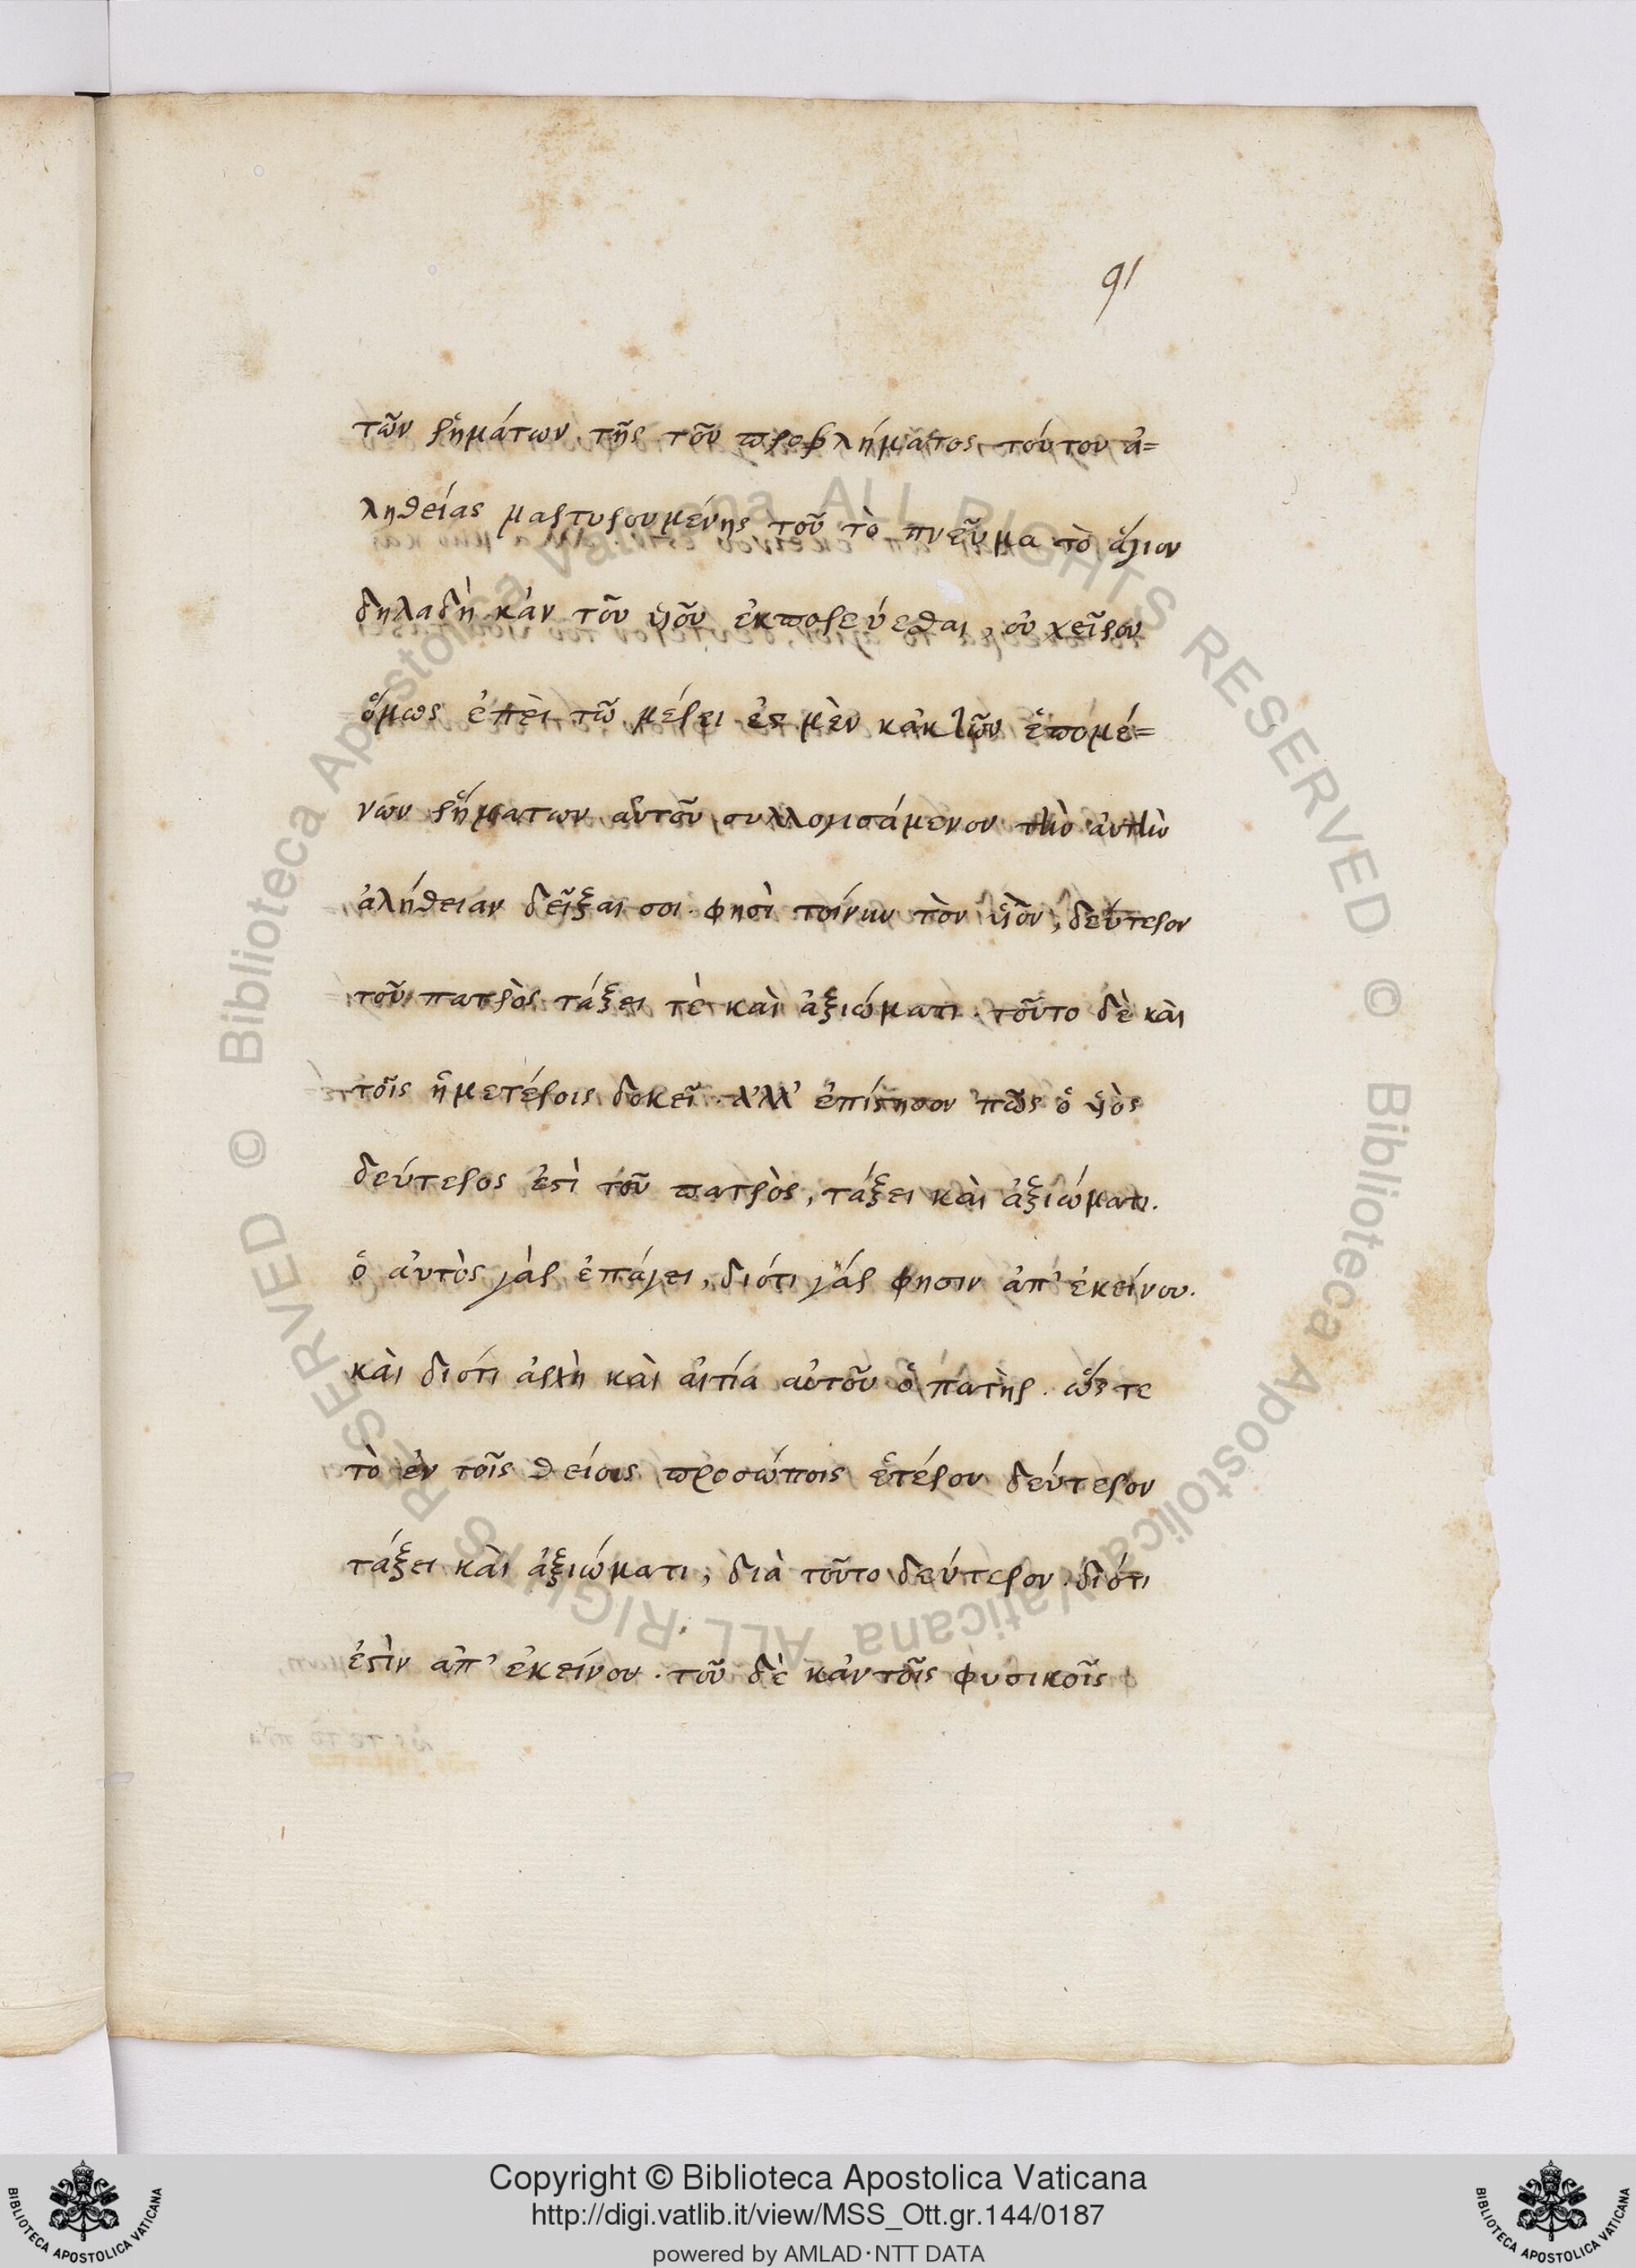 91
τῶν ῥημάτων τῆς τοῦ προβλήματος τούτου ἀ=
ληθείας μαρτυρουμένης τοῦ τὸ πνεῦμα τὸ ἅγιον
δηλαδὴ κἀν τοῦ ὑιοῦ ἐκπορεύεσθαι, οὐ χεῖρον
ὅμως ἐπεὶ τῶ μέρει μὲν κἀκ τῶν ἑπομέ=
νων ῥήματων αὐτοῦ συλλογισάμενον τὴν αὐτὴν
ἀλήθειαν δεῖξαι σοι. φησὶ τοίνυν τὸν ὑιὸν, δεύτερον
τοῦ πατρὸς τάξει τὲ καὶ ἀξιώματι. τοῦτο δὲ καὶ
τοῖς ἡμετέροις δοκεῖ. ἀλλ' ἐπίστησον πῶς ὁ ὑιὸς
δεύτερος ἐστὶ τοῦ πατρὸς, τάξει καὶ ἀξιώματι.
ὁ αὐτὸς γὰρ ἐπάγει, διότι γάρ φησιν ἀπ' ἐκείνου.
καὶ διότι ἀρχὴ καὶ αἰτία αὐτοῦ ὁ πατὴρ. ὥς τε
τὸ ἐν τοῖς θείοις προσώποις ἑτέρου δεύτερον
τάξει καὶ ἀξιώματι, διὰ τοῦτο δεύτερον. διότι
ἐστὶν ἀπ' ἐκείνου. τοῦ δὲ κἀν τοῖς φυσικοῖς
© Biblioteca Apostolica Vaticana ALL RIGHTS RESERVED
© Biblioteca Apostolica Vaticana ALL RIGHTS RESERVED
Copyright © Biblioteca Apostolica Vaticana
http://digi.vatlib.it/view/MSS_Ott.gr.144/0187
powered by AMLAD·NTT DATA
BIBLIOTECA APOSTOLICA VATICANA
BIBLIOTECA APOSTOLICA VATICANA